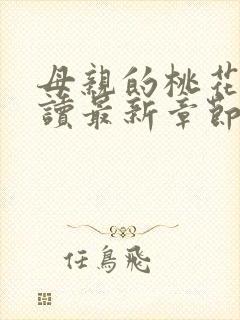 母親的桃花
讀最新章節
任鳥飛